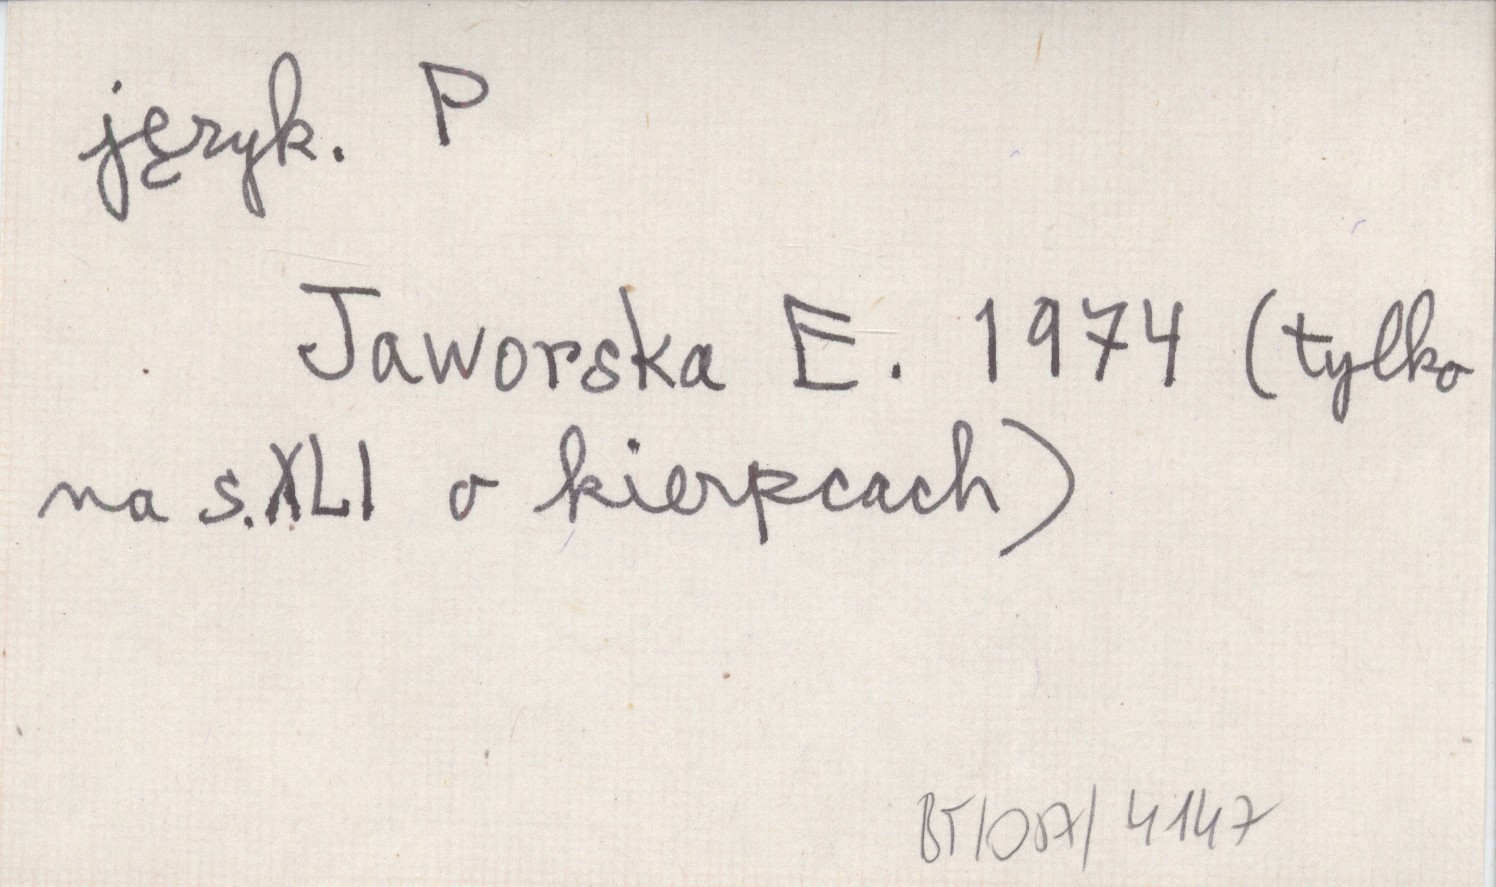 język. P
Jaworska E. 1974 (tylko
na s. XLI o kierpcach)
BT/087/4147